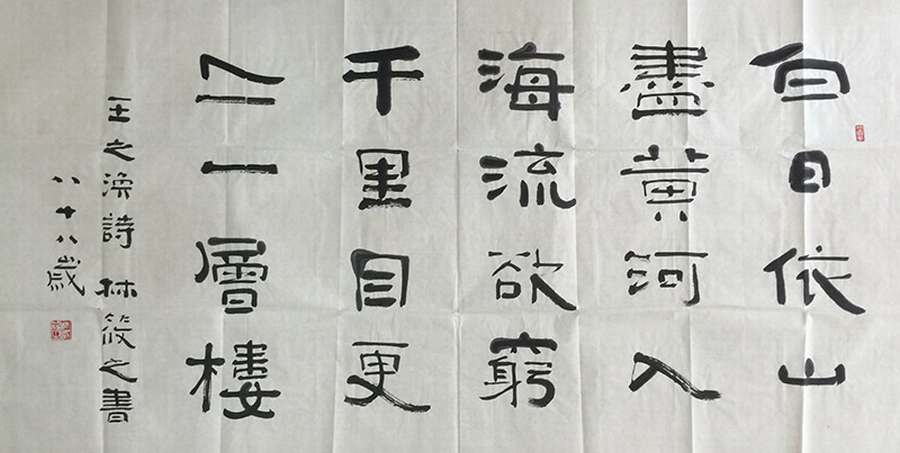 白日依山
盡黄河入
海流欲窮
千里目更
上一層樓
王之渙詩 林筱之書
八十八歲